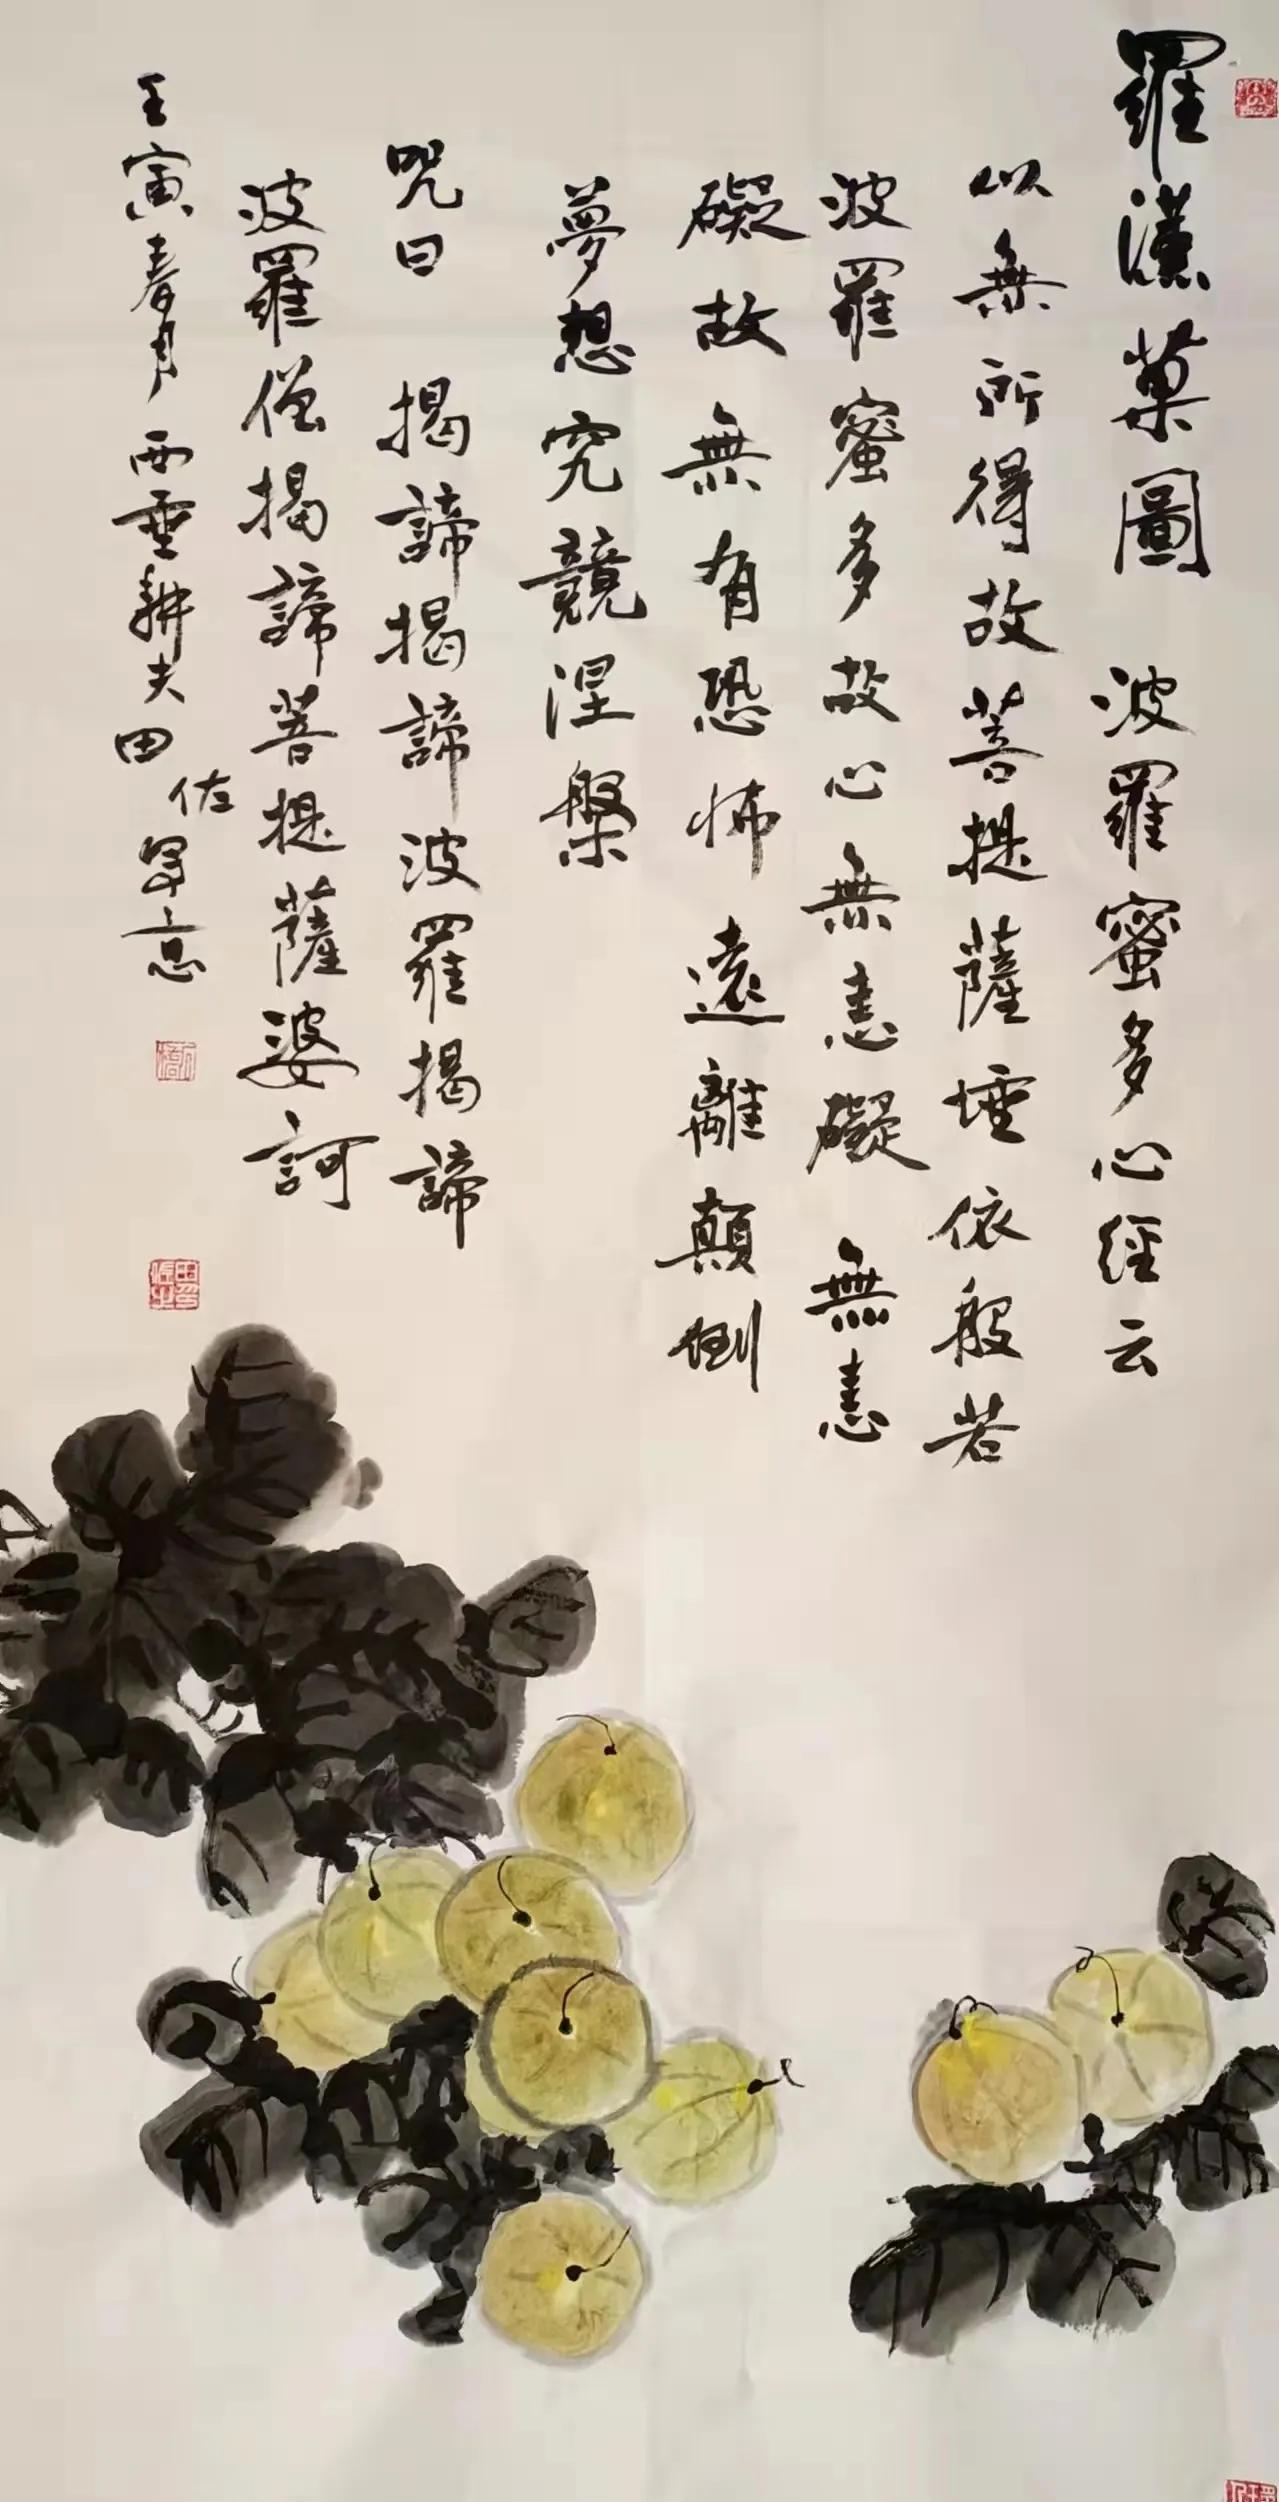 羅漢菓圖 波羅蜜多心經云
以無所得故菩提薩埵依般若
波羅蜜多故心無恚礙 無恚
礙故無有恐怖 遠離顛倒
夢想究競涅槃
呪曰 揭諦揭諦波羅揭諦
波羅僧揭諦菩提薩婆訶
壬寅春月西垂耕夫田佐写意